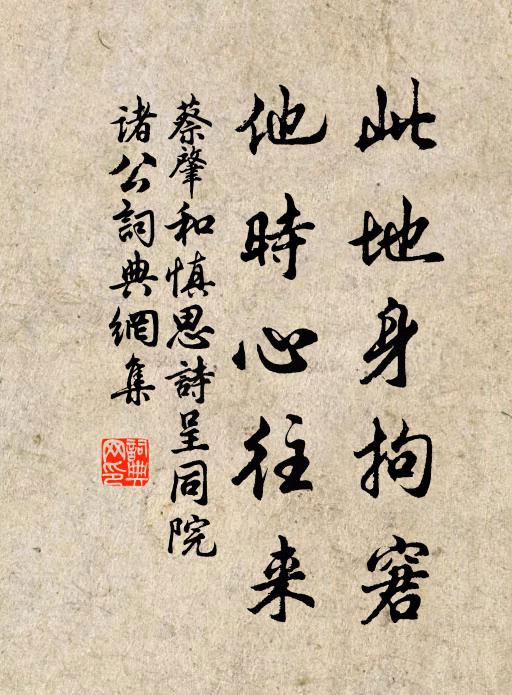 此地身拘窘
他時心往来
蔡肇和慎思詩呈同院
諸公詞典網集
詞典网印